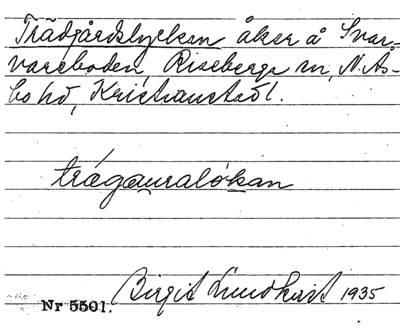 Trädjårdslyckan åker å Svar-
vareboden, Riseberga sn, N. Ås-
bo hd, Kristianstad l.
trágauralókan
Birgit Lundkvist 1935
Nr 5501.